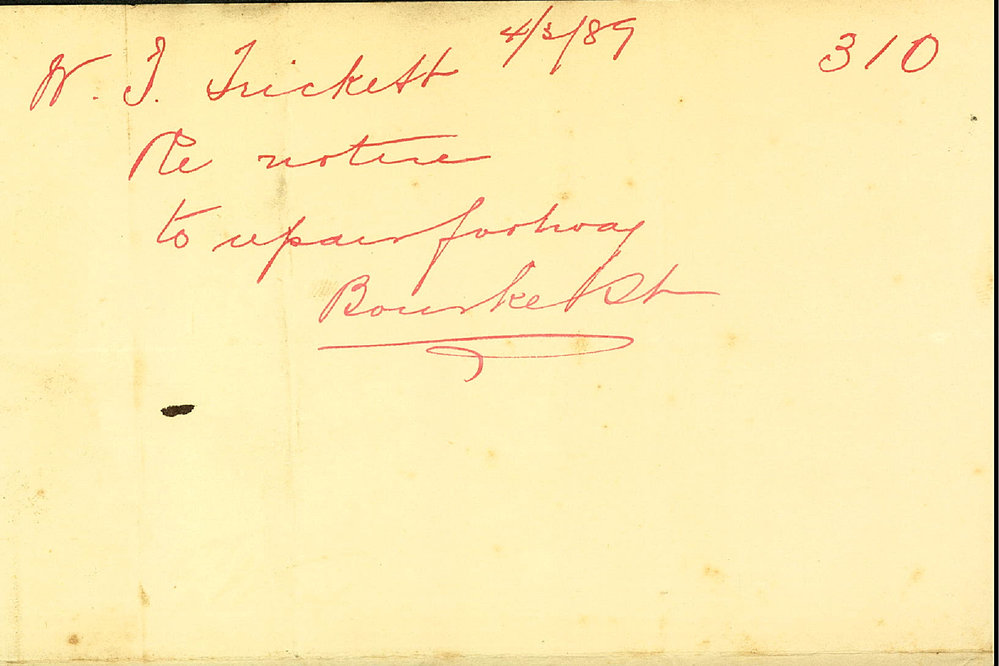 4/3/89 310
W. J. Trickett
Re notice
to repair footway
Bourke St